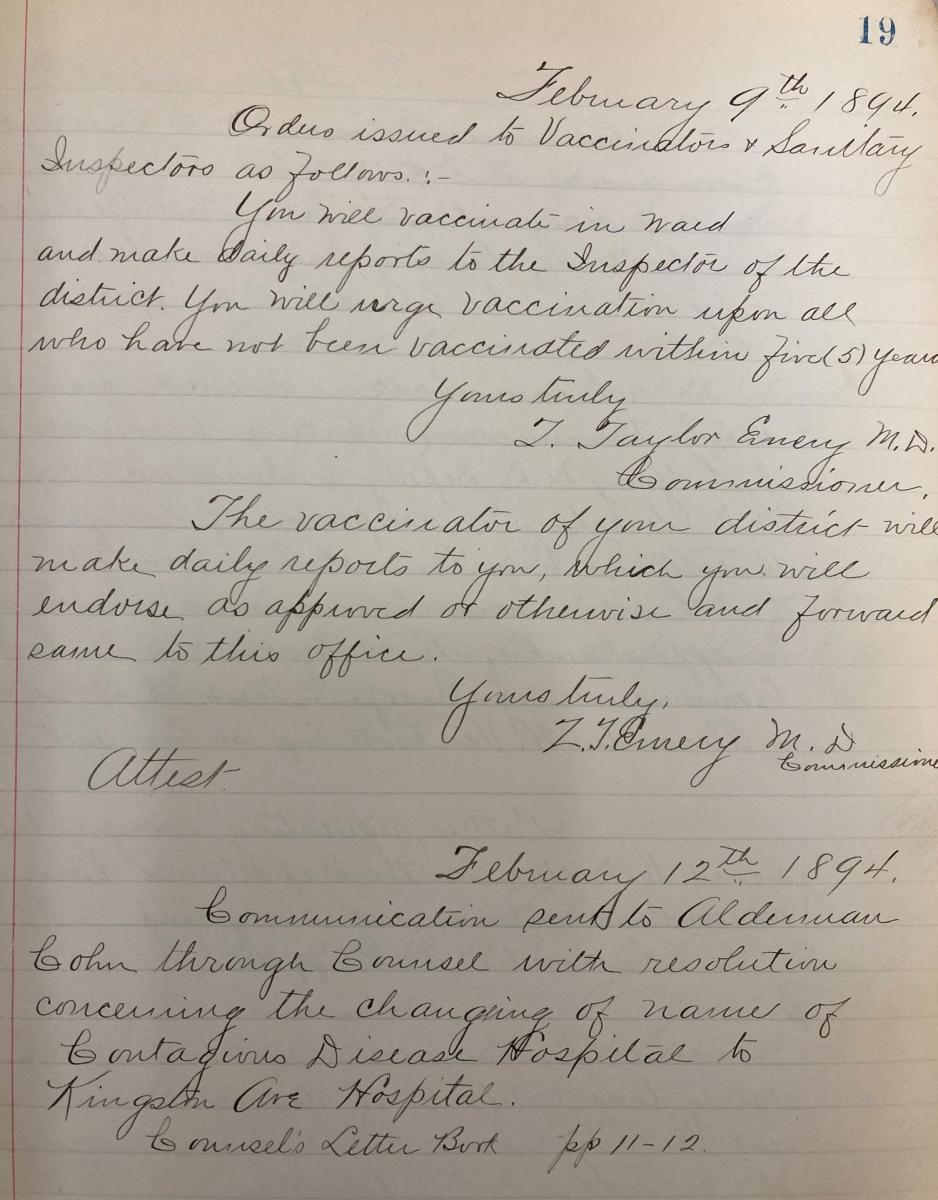 19
February 9th 1894.
Orders issued to Vaccinators & Sanitary
Inspectors as follows. :-
You will vaccinate in Ward
and make daily reports to the Inspector of the
district. You will urge vaccination upon all
who have not been vaccinated within five (5) years
Yours truly
Z. Taylor Emery M.D.
Commissioner,
The vaccinator of your district will
make daily reports to you, which you will
endorse as approved or otherwise and forward
same to this office.
Yours truly,
Z.T. Emery M.D
Commissione
Attest
February 12th 1894.
Communication sent to Alderman
Cohn through Counsel with resolution
concerning the changing of name of
Contagious Disease Hospital to
Kingston Ave Hospital.
Counsel's Letter Book pp 11-12.